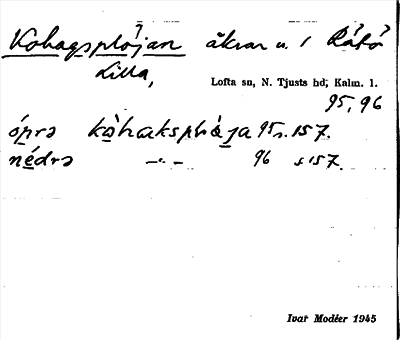 Kohagsplöjan åkrar u. 1 Råtö
Lilla,
Lofta sn, N. Tjusts hd, Kalm. l.
95, 96
óprə kòhaksplòja 95 s. 157.
nédrə —"— 96 s 157.
Ivar Modéer 1945